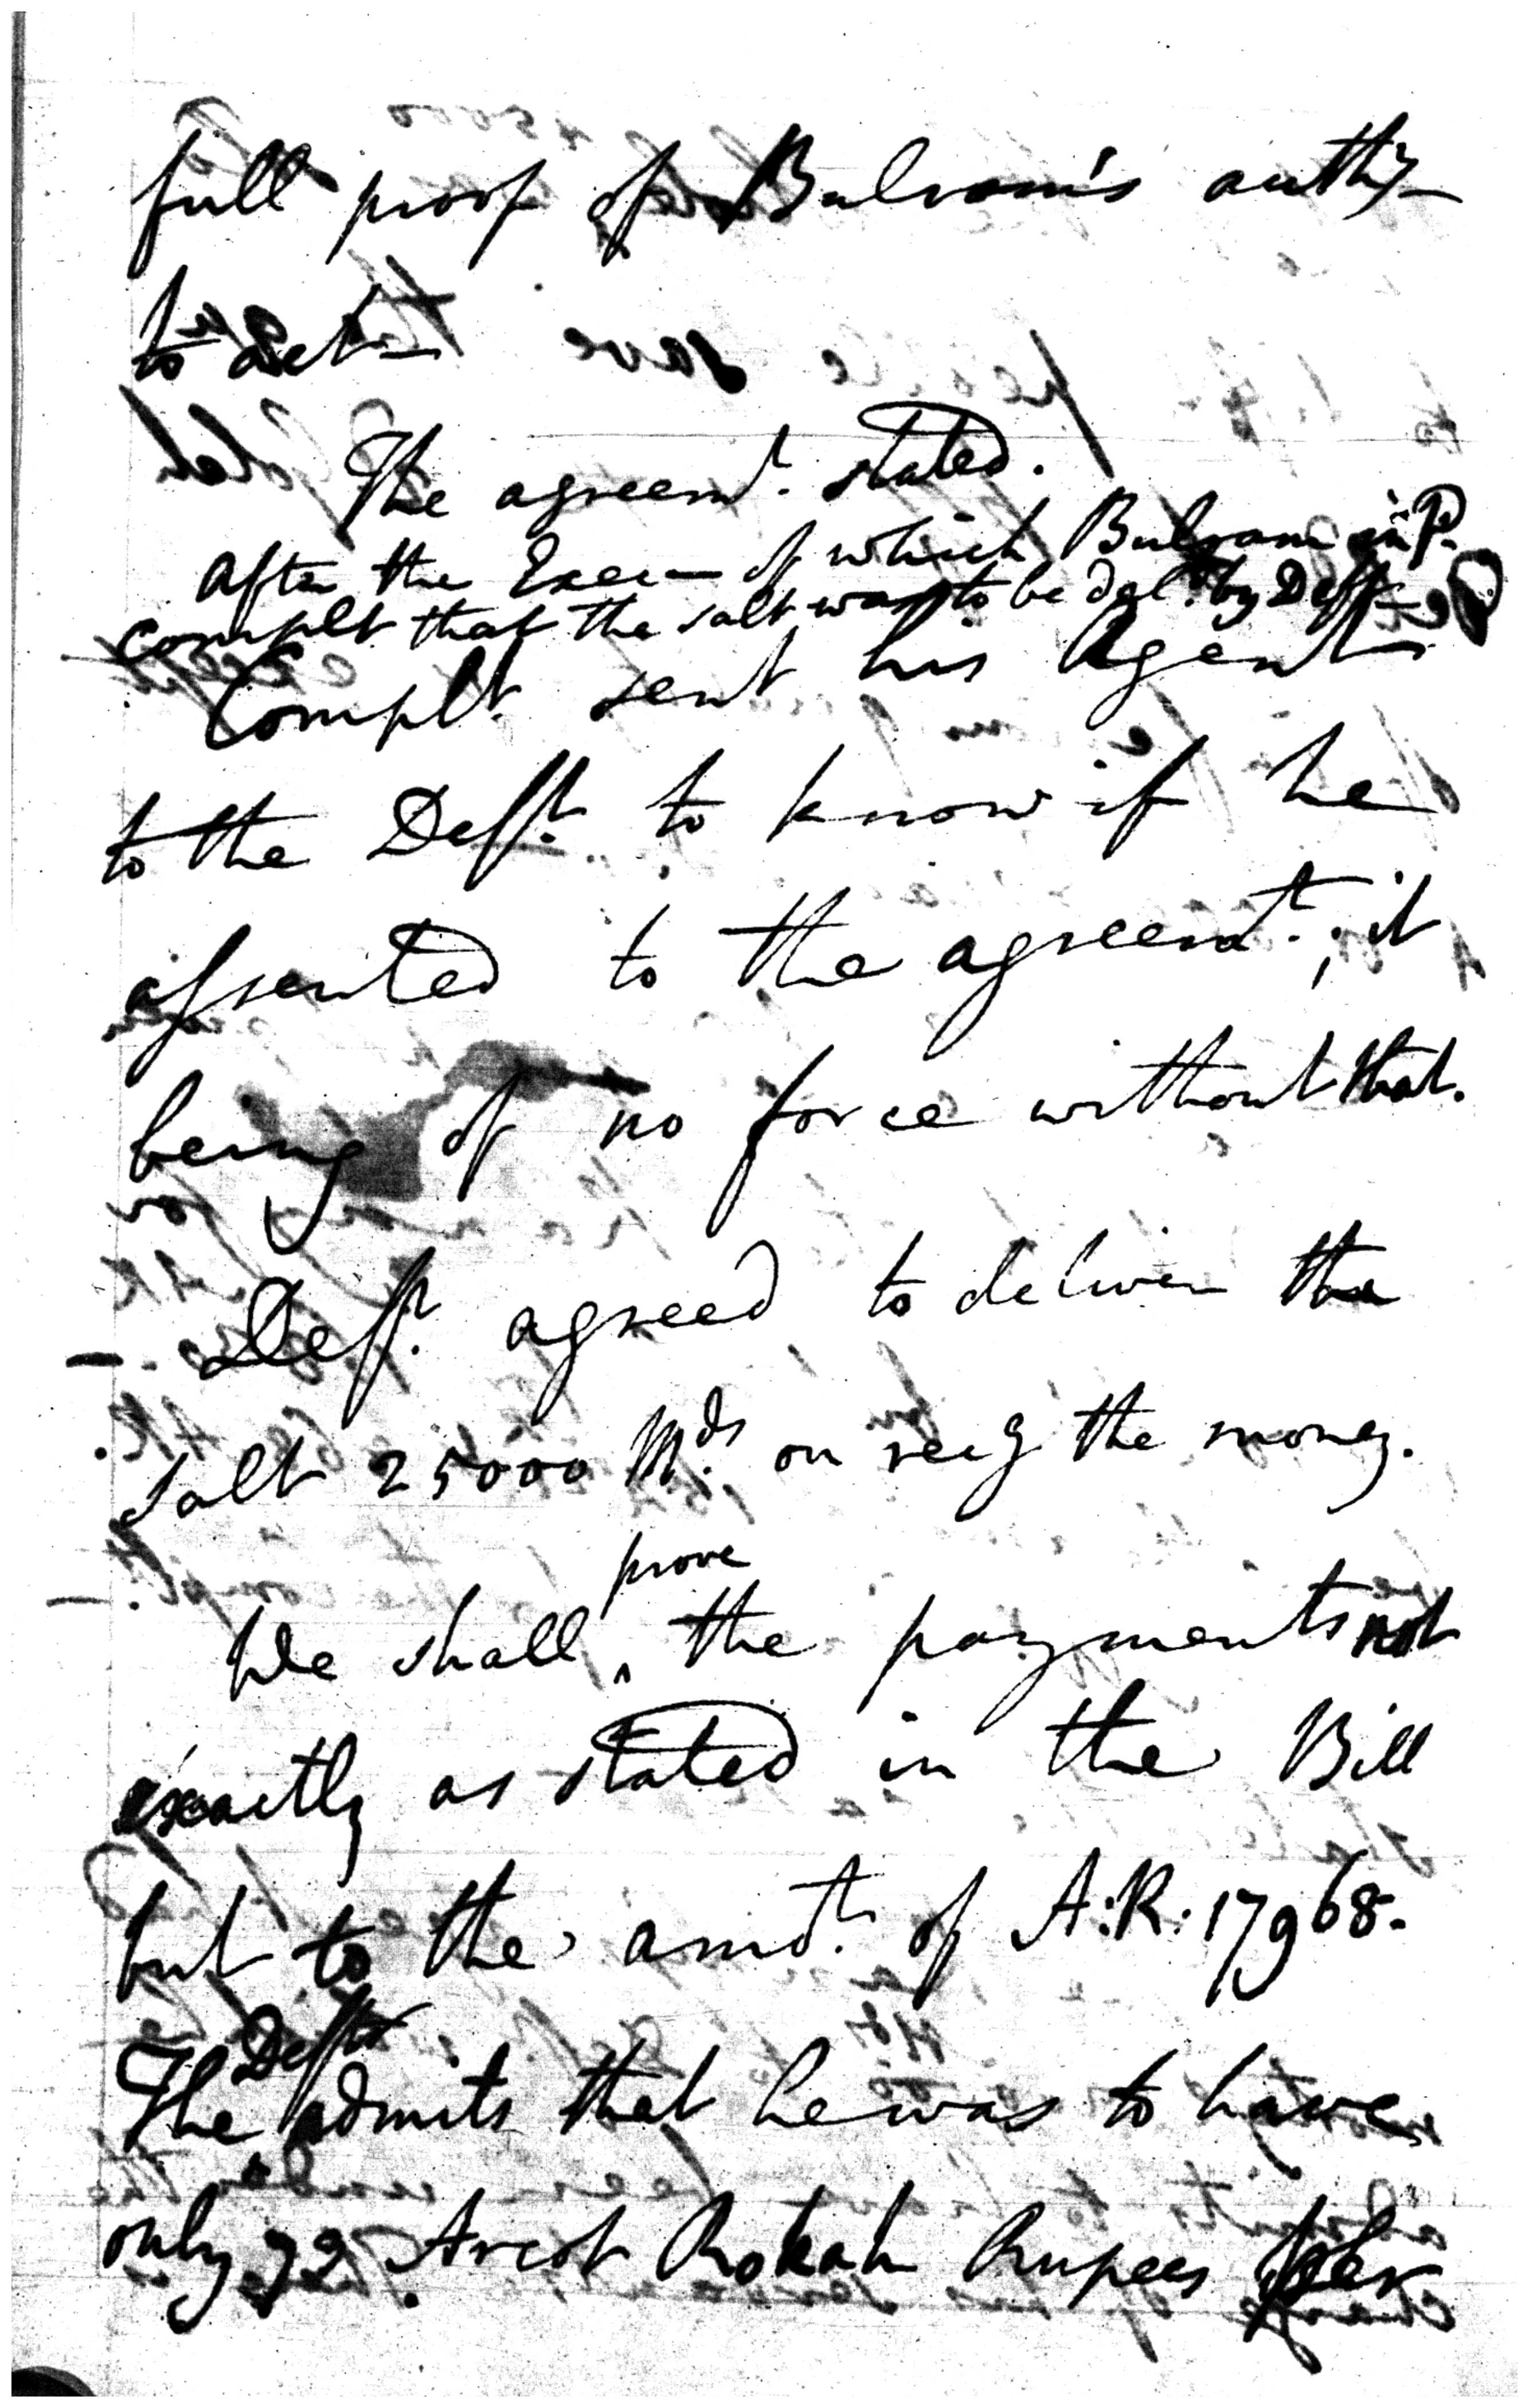 full proof of Bulram's authy
to act —
The agreemt. stated.
After the Exec— of which Bulram in
complt that the salt was to be del. by Deft
Complt. sent his Agent
to the Deft. to know if he
assented to the agreemt.; it
being of no force without that.
Deft. agreed to deliver the
salt 25000 Mds. on recg the money.
prove
We shall ‸ the payments not
exactly as stated in the Bill
but to the amot. of A:R: 17968.
Deft
The admits that he was to have
only 72 Arcot Rokah Rupees per